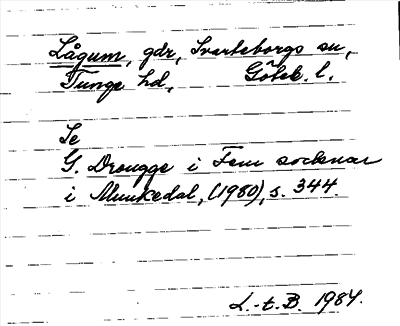 Lågum, gdr, Svarteborgs sn,
Tunge hd, Göteb. l.
Se
G. Drougge i Fem socknar
i Munkedal, (1980), s. 344.
L.-t. B. 1984.